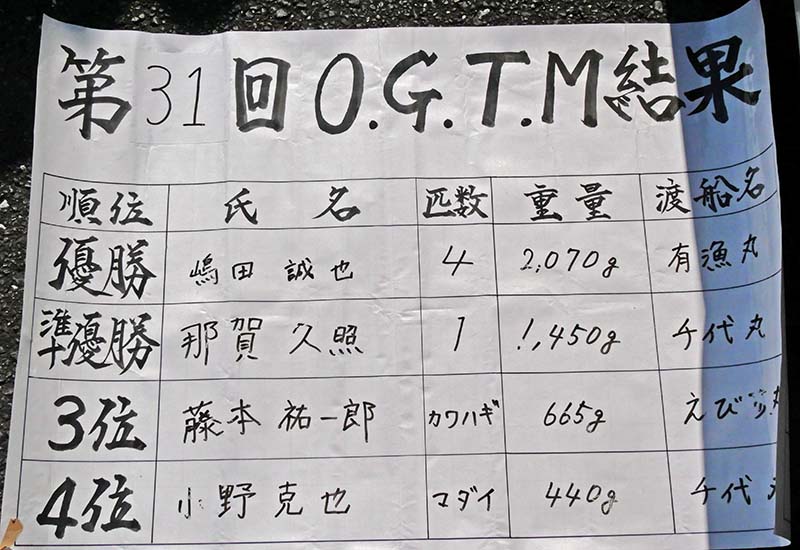 第31回 O.G.T.M結果
順位 氏名 匹数 重量 渡船名
優勝 嶋田誠也 4 2,070g 有漁丸
準優勝 那賀久照 1 1,450g 千代丸
3位 藤本祐一郎 カワハギ 665g えびす丸
4位 小野克也 マダイ 440g 千代丸